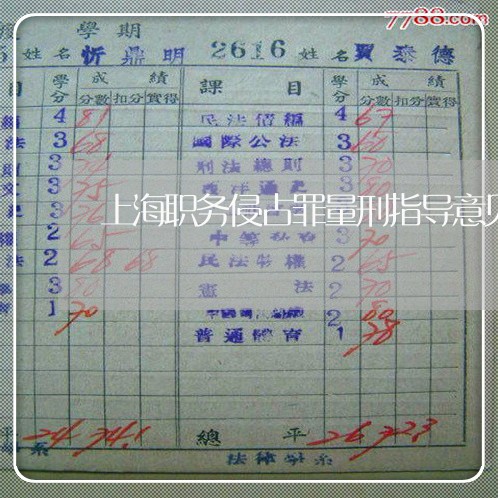 7788.com
學期
姓名 忻鼎明 2616 姓名 賈泰德
目 學分 成績 課目 學分 成績
分數 扣分 實得 分數 扣分 實得
4 81 民法債編 4 67
法 3 68 國際公法 3 60
3 刑法總則 3 70
3 75 西洋通史 3 80
3 76
2 65 3 70
法 2 68 68 民法物權 2 65
3 80 憲法 2 70
1 70 2 80
普通體育 1 78
上海职务侵占罪量刑指导意见
平 24 74.1 總平 26 72.3
系 法律學系